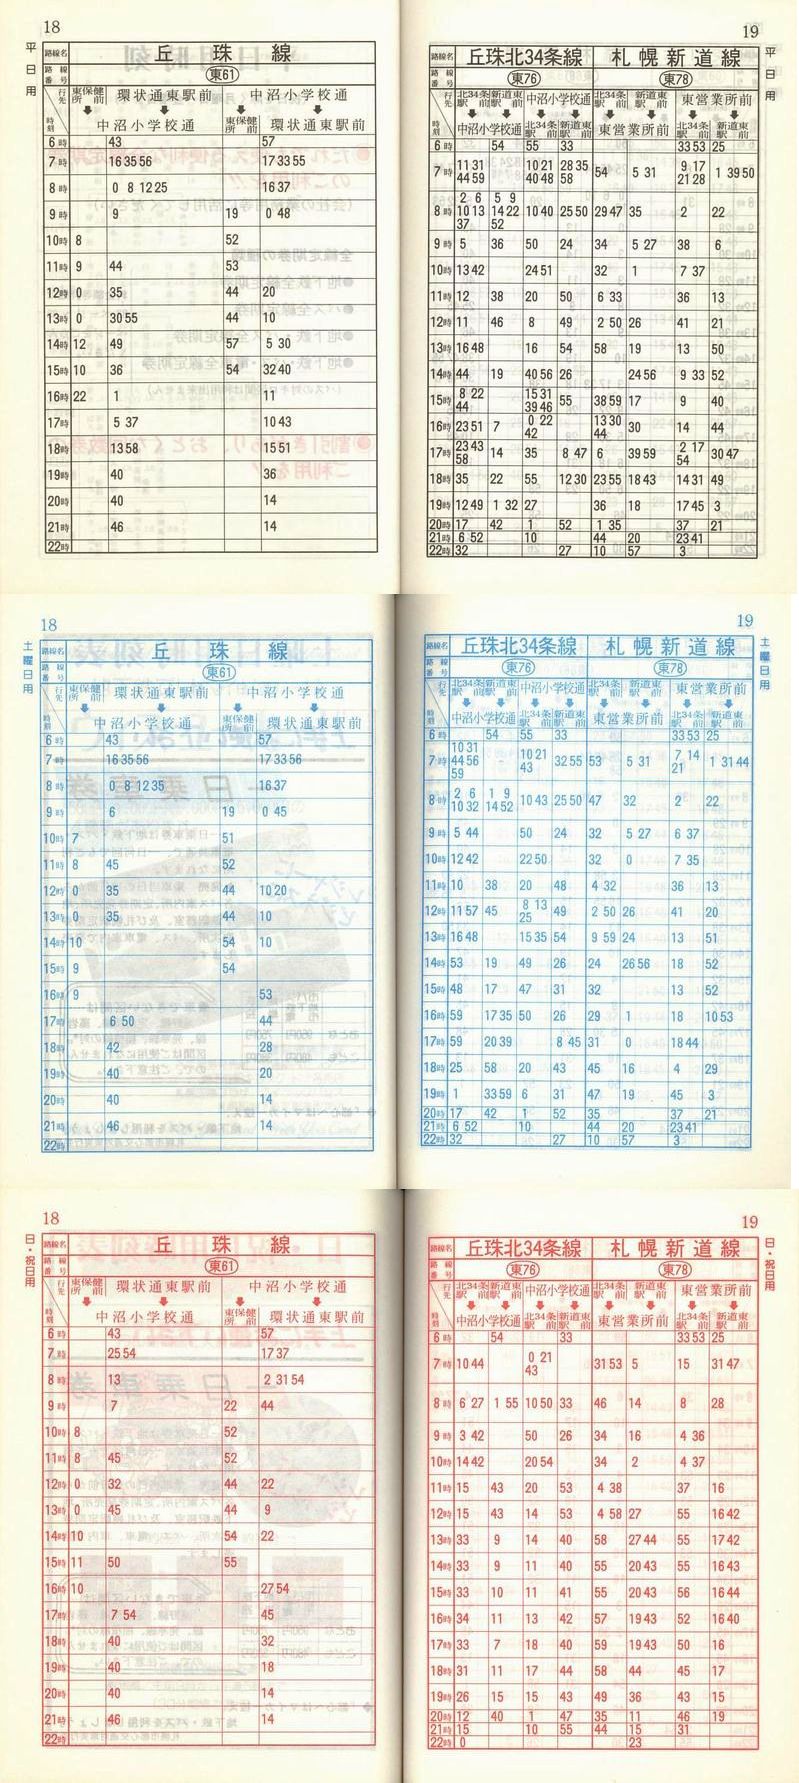 18
平日用
路線名 丘珠線
路線番号 東61
行先 東保健所前 環状通東駅前 中沼小学校通
時刻 中沼小学校通 東保健所前 環状通東駅前
6時 43 57
7時 16 35 56 17 33 55
8時 0 8 12 25 16 37
9時 9 19 0 48
10時 8 52
11時 9 44 53
12時 0 35 44 20
13時 0 30 55 44 10
14時 12 49 57 5 30
15時 10 36 54 32 40
16時 22 1 11
17時 5 37 10 43
18時 13 58 15 51
19時 40 36
20時 40 14
21時 46 14
22時
19
平日用
路線名 丘珠北34条線 札幌新道線
路線番号 東76 東78
行先 北34条駅前 新道東駅前 中沼小学校通 北34条駅前 新道東駅前 東営業所前
時刻 中沼小学校通 北34条駅前 新道東駅前 東営業所前 北34条駅前 新道東駅前
6時 54 55 33 33 53 25
7時 11 31 44 59 10 21 40 48 28 35 58 54 5 31 9 17 21 28 1 39 50
8時 2 6 10 13 37 5 9 14 22 52 10 40 25 50 29 47 35 2 22
9時 5 36 50 24 34 5 27 38 6
10時 13 42 24 51 32 1 7 37
11時 12 38 20 50 6 33 36 13
12時 11 46 8 49 2 50 26 41 21
13時 16 48 16 54 58 19 13 50
14時 44 19 40 56 26 24 56 9 33 52
15時 8 22 44 15 31 39 46 55 38 59 17 9 40
16時 23 51 7 0 22 42 13 30 44 30 14 44
17時 23 43 58 14 35 8 47 6 39 59 2 17 54 30 47
18時 35 22 55 12 30 23 55 18 43 14 31 49
19時 12 49 1 32 27 36 18 17 45 3
20時 17 42 1 52 1 35 37 21
21時 6 52 10 44 20 23 41
22時 32 27 10 57 3
18
土曜日用
路線名 丘珠線
路線番号 東61
行先 東保健所前 環状通東駅前 中沼小学校通
時刻 中沼小学校通 東保健所前 環状通東駅前
6時 43 57
7時 16 35 56 17 33 56
8時 0 8 12 35 16 37
9時 6 19 0 45
10時 7 51
11時 8 45 52
12時 0 35 44 10 20
13時 0 35 44 10
14時 10 54 10
15時 9 54
16時 9 53
17時 6 50 44
18時 42 28
19時 40 20
20時 40 14
21時 46 14
22時
19
土曜日用
路線名 丘珠北34条線 札幌新道線
路線番号 東76 東78
行先 北34条駅前 新道東駅前 中沼小学校通 北34条駅前 新道東駅前 東営業所前
時刻 中沼小学校通 北34条駅前 新道東駅前 東営業所前 北34条駅前 新道東駅前
6時 54 55 33 33 53 25
7時 10 31 44 56 59 10 21 43 32 55 53 5 31 7 14 21 1 31 44
8時 2 6 10 32 1 9 14 52 10 43 25 50 47 32 2 22
9時 5 44 50 24 32 5 27 6 37
10時 12 42 22 50 32 0 7 35
11時 10 38 20 48 4 32 36 13
12時 11 57 45 8 13 25 49 2 50 26 41 20
13時 16 48 15 35 54 9 59 24 13 51
14時 53 19 49 26 24 26 56 18 52
15時 48 17 47 31 32 13 52
16時 59 17 35 50 26 29 1 18 10 53
17時 59 20 39 8 45 31 0 18 44
18時 25 58 20 43 45 16 4 29
19時 1 33 59 6 31 47 19 45 3
20時 17 42 1 52 35 37 21
21時 6 52 10 44 20 23 41
22時 32 27 10 57 3
18
日・祝日用
路線名 丘珠線
路線番号 東61
行先 東保健所前 環状通東駅前 中沼小学校通
時刻 中沼小学校通 東保健所前 環状通東駅前
6時 43 57
7時 25 54 17 37
8時 13 2 31 54
9時 7 22 44
10時 8 52
11時 8 45 52
12時 0 32 44 22
13時 0 45 44 9
14時 10 54 22
15時 11 50 55
16時 10 27 54
17時 7 54 45
18時 40 32
19時 40 18
20時 40 14
21時 46 14
22時
19
日・祝日用
路線名 丘珠北34条線 札幌新道線
路線番号 東76 東78
行先 北34条駅前 新道東駅前 中沼小学校通 北34条駅前 新道東駅前 東営業所前
時刻 中沼小学校通 北34条駅前 新道東駅前 東営業所前 北34条駅前 新道東駅前
6時 54 33 33 53 25
7時 10 44 0 21 43 31 53 5 15 31 47
8時 6 27 1 55 10 50 33 46 14 8 28
9時 3 42 50 26 34 16 4 36
10時 14 42 20 54 34 2 4 37
11時 15 43 20 53 4 38 37 16
12時 15 43 14 53 4 58 27 55 16 42
13時 33 9 14 40 58 27 44 55 17 42
14時 33 9 11 40 55 20 43 55 16 43
15時 33 10 11 41 55 20 43 56 16 44
16時 34 11 13 42 57 19 43 52 16 40
17時 33 7 18 40 59 19 43 50 16
18時 31 11 17 44 58 44 45 17
19時 26 15 15 43 49 36 43 15
20時 12 40 1 47 35 11 46 19
21時 15 10 55 44 15 31
22時 0 23